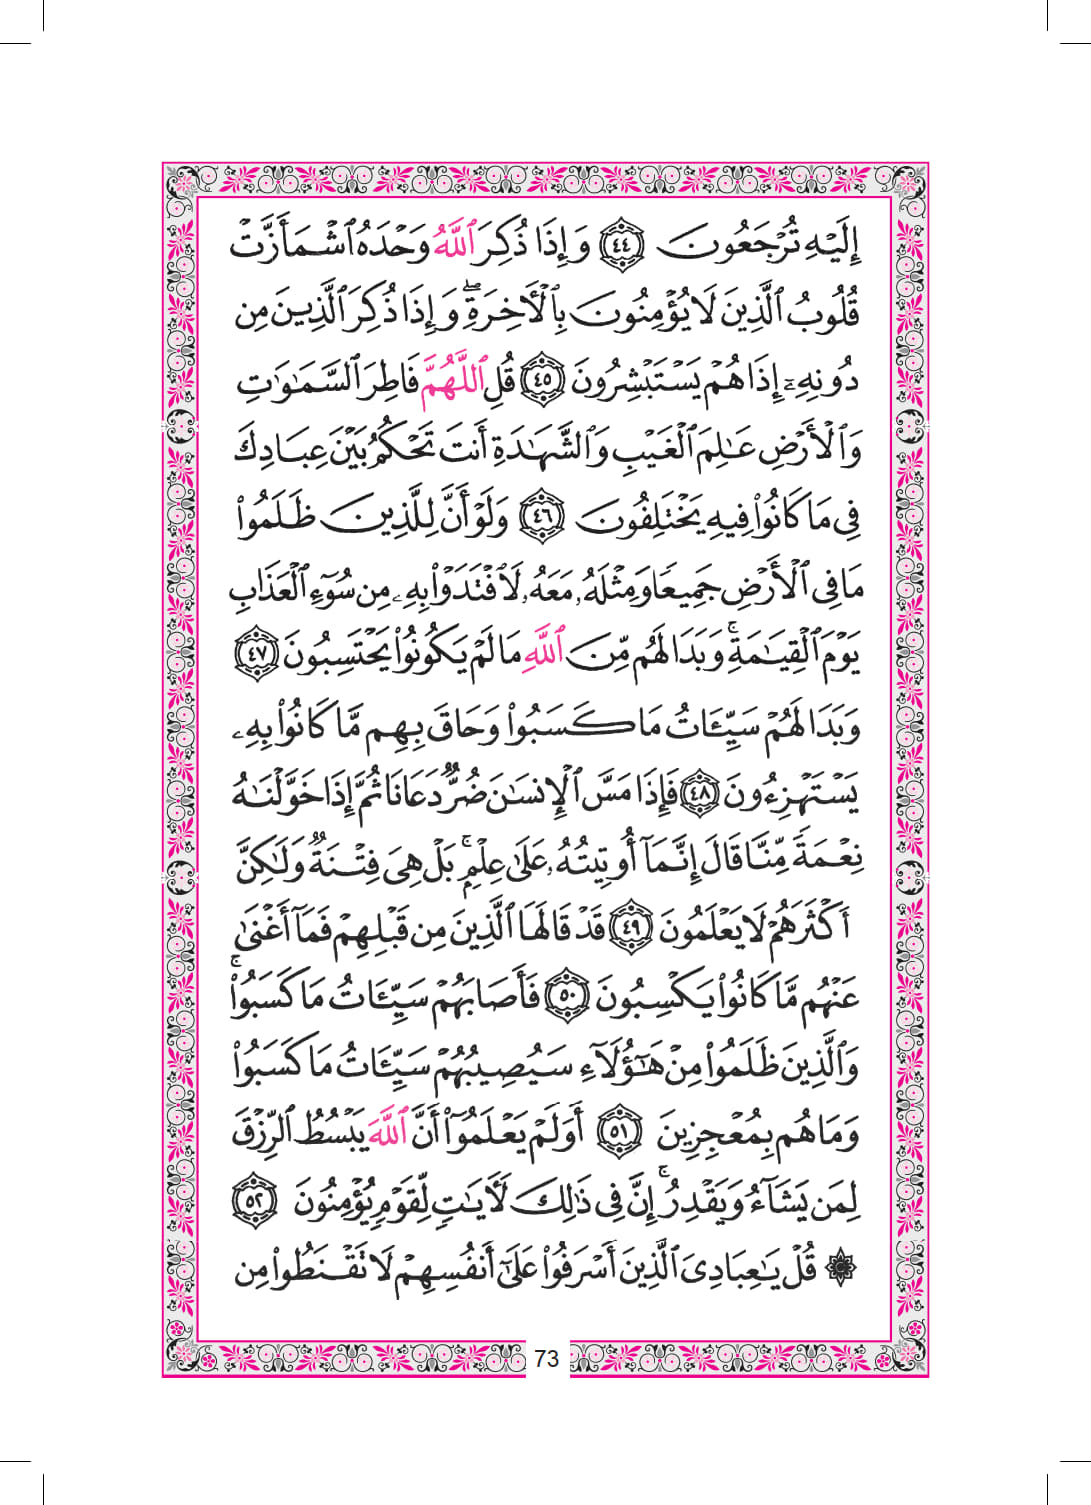 إِلَيْهِ تُرْجَعُونَ ٤٤ وَإِذَا ذُكِرَ ٱللَّهُ وَحْدَهُ ٱشْمَأَزَّتْ
قُلُوبُ ٱلَّذِينَ لَا يُؤْمِنُونَ بِٱلْأَخِرَةِۖ وَإِذَا ذُكِرَ ٱلَّذِينَ مِن
دُونِهِۦٓ إِذَا هُمْ يَسْتَبْشِرُونَ ٤٥ قُلِ ٱللَّهُمَّ فَاطِرَ ٱلسَّمَٰوَٰتِ
وَٱلْأَرْضِ عَٰلِمَ ٱلْغَيْبِ وَٱلشَّهَٰدَةِ أَنتَ تَحْكُمُ بَيْنَ عِبَادِكَ
فِى مَا كَانُوا۟ فِيهِ يَخْتَلِفُونَ ٤٦ وَلَوْ أَنَّ لِلَّذِينَ ظَلَمُوا۟
مَا فِى ٱلْأَرْضِ جَمِيعًا وَمِثْلَهُۥ مَعَهُۥ لَٱفْتَدَوْا۟ بِهِۦ مِن سُوٓءِ ٱلْعَذَابِ
يَوْمَ ٱلْقِيَٰمَةِۚ وَبَدَا لَهُم مِّنَ ٱللَّهِ مَا لَمْ يَكُونُوا۟ يَحْتَسِبُونَ ٤٧
وَبَدَا لَهُمْ سَيِّـَٔاتُ مَا كَسَبُوا۟ وَحَاقَ بِهِم مَّا كَانُوا۟ بِهِۦ
يَسْتَهْزِءُونَ ٤٨ فَإِذَا مَسَّ ٱلْإِنسَٰنَ ضُرٌّ دَعَانَا ثُمَّ إِذَا خَوَّلْنَٰهُ
نِعْمَةً مِّنَّا قَالَ إِنَّمَآ أُوتِيتُهُۥ عَلَىٰ عِلْمٍۚ بَلْ هِىَ فِتْنَةٌ وَلَٰكِنَّ
أَكْثَرَهُمْ لَا يَعْلَمُونَ ٤٩ قَدْ قَالَهَا ٱلَّذِينَ مِن قَبْلِهِمْ فَمَآ أَغْنَىٰ
عَنْهُم مَّا كَانُوا۟ يَكْسِبُونَ ٥٠ فَأَصَابَهُمْ سَيِّـَٔاتُ مَا كَسَبُوا۟ۚ
وَٱلَّذِينَ ظَلَمُوا۟ مِنْ هَٰٓؤُلَآءِ سَيُصِيبُهُمْ سَيِّـَٔاتُ مَا كَسَبُوا۟
وَمَا هُم بِمُعْجِزِينَ ٥١ أَوَلَمْ يَعْلَمُوٓا۟ أَنَّ ٱللَّهَ يَبْسُطُ ٱلرِّزْقَ
لِمَن يَشَآءُ وَيَقْدِرُۚ إِنَّ فِى ذَٰلِكَ لَأَيَٰتٍ لِّقَوْمٍ يُؤْمِنُونَ ٥٢
۞ قُلْ يَٰعِبَادِىَ ٱلَّذِينَ أَسْرَفُوا۟ عَلَىٰٓ أَنفُسِهِمْ لَا تَقْنَطُوا۟ مِن
73